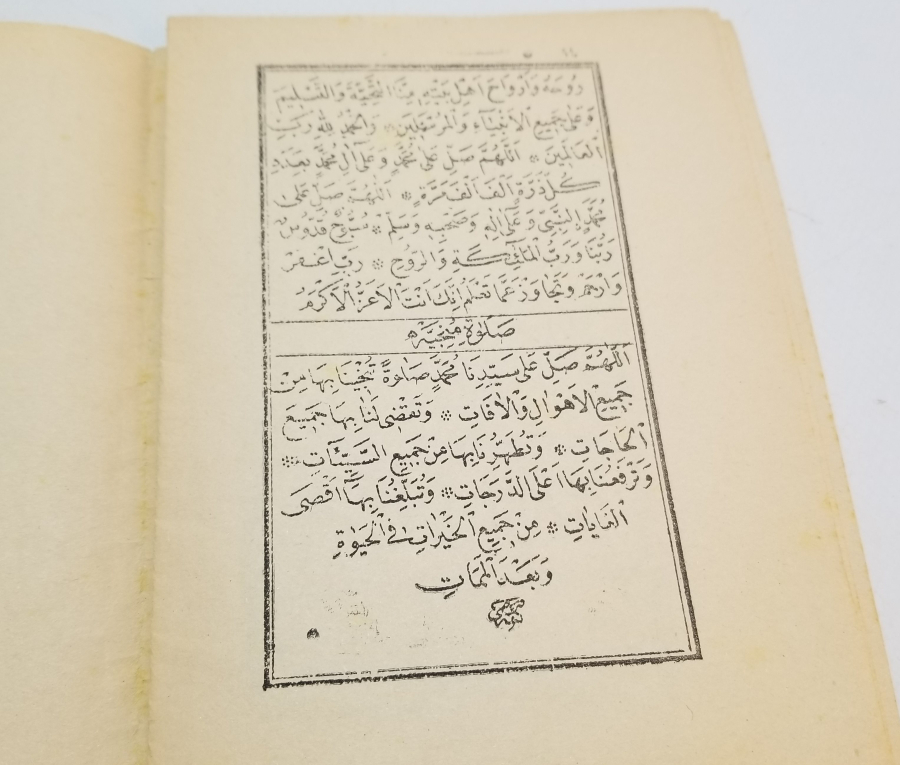 رُوحَهُ وَأَرْوَاحَ اَهْلِ بَيْتِهِ مِنَّا التَّحِيَّةَ وَالتَّسْلِيمَ
وَعَلٰى جَمِيعِ الْاَنْبِيَاءِ وَالْمُرْسَلِينَ ❊ وَالْحَمْدُ لِلّٰهِ رَبِّ
الْعَالَمِينَ ❊ اَللّٰهُمَّ صَلِّ عَلٰى مُحَمَّدٍ وَعَلٰى اٰلِ مُحَمَّدٍ بِعَدَدِ
كُلِّ ذَرَّةٍ اَلْفَ اَلْفَ مَرَّةٍ ❊ اَللّٰهُمَّ صَلِّ عَلٰى
مُحَمَّدٍ النَّبِيِّ وَعَلٰى اٰلِهِ وَصَحْبِهِ وَسَلِّمْ ❊ سُبُّوحٌ قُدُّوسٌ
رَبُّنَا وَرَبُّ الْمَلٰئِكَةِ وَالرُّوحِ ❊ رَبِّ اغْفِرْ
وَارْحَمْ وَتَجَاوَزْ عَمَّا تَعْلَمُ اِنَّكَ اَنْتَ الْاَعَزُّ الْاَكْرَمُ
صَلٰوةِ مُنْجِيَه
اَللّٰهُمَّ صَلِّ عَلٰى سَيِّدِنَا مُحَمَّدٍ صَلٰوةً تُنْجِينَا بِهَا مِنْ
جَمِيعِ الْاَهْوَالِ وَالْاٰفَاتِ ❊ وَتَقْضِى لَنَا بِهَا جَمِيعَ
الْحَاجَاتِ ❊ وَتُطَهِّرُنَا بِهَا مِنْ جَمِيعِ السَّيِّئَاتِ ❊
وَتَرْفَعُنَا بِهَا اَعْلَى الدَّرَجَاتِ ❊ وَتُبَلِّغُنَا بِهَا اَقْصَى
الْغَايَاتِ ❊ مِنْ جَمِيعِ الْخَيْرَاتِ فِى الْحَيٰوةِ
وَبَعْدَ الْمَمَاتِ